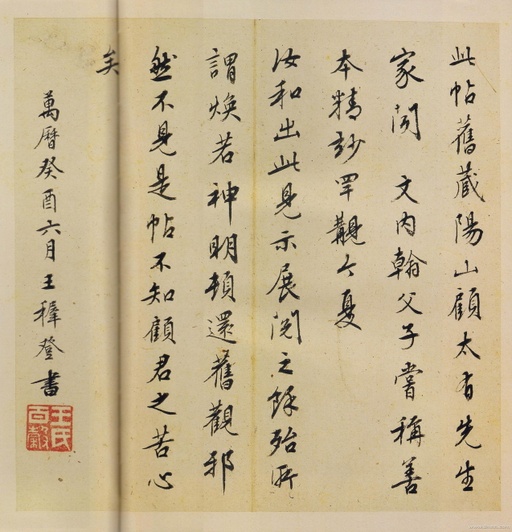 此帖舊蔵陽山顧太有先生
家閒 文内翰父子嘗稱善
本精妙罕覯今夏
汝和出此見示展閱之餘殆所
謂煥若神明頓還舊觀邪
然不見是帖不知顧君之苦心
矣
萬曆癸酉六月王穉登書
王氏
百穀